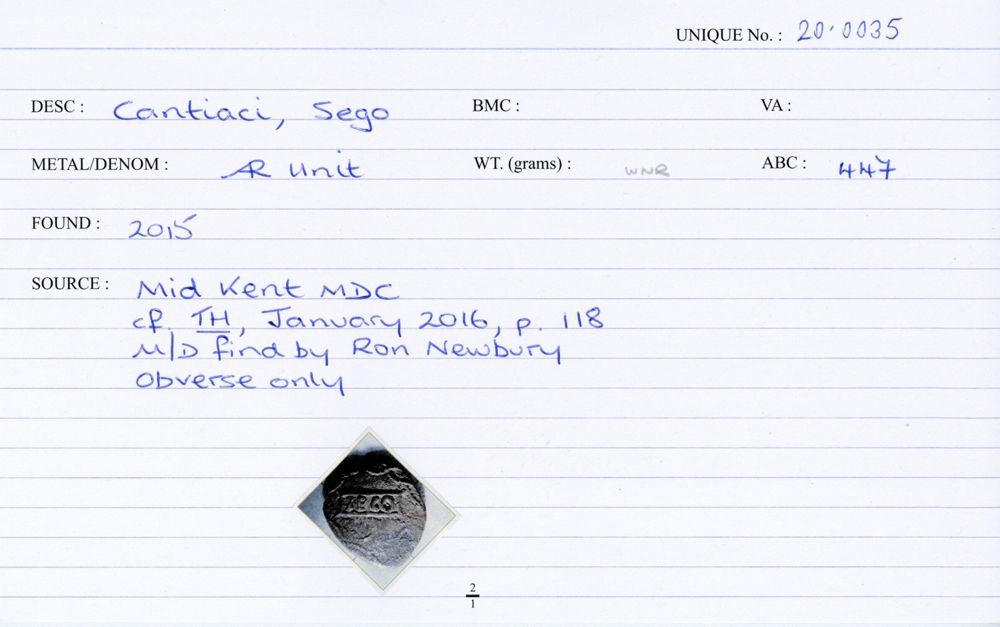 UNIQUE No. : 20·0035
DESC : Cantiaci, Sego BMC : VA :
METAL/DENOM : AR Unit WT. (grams) : WNR ABC : 447
FOUND : 2015
SOURCE : Mid Kent MDC
cf. TH, January 2016, p. 118
M/D find by Ron Newbury
Obverse only
SEGO
2
1